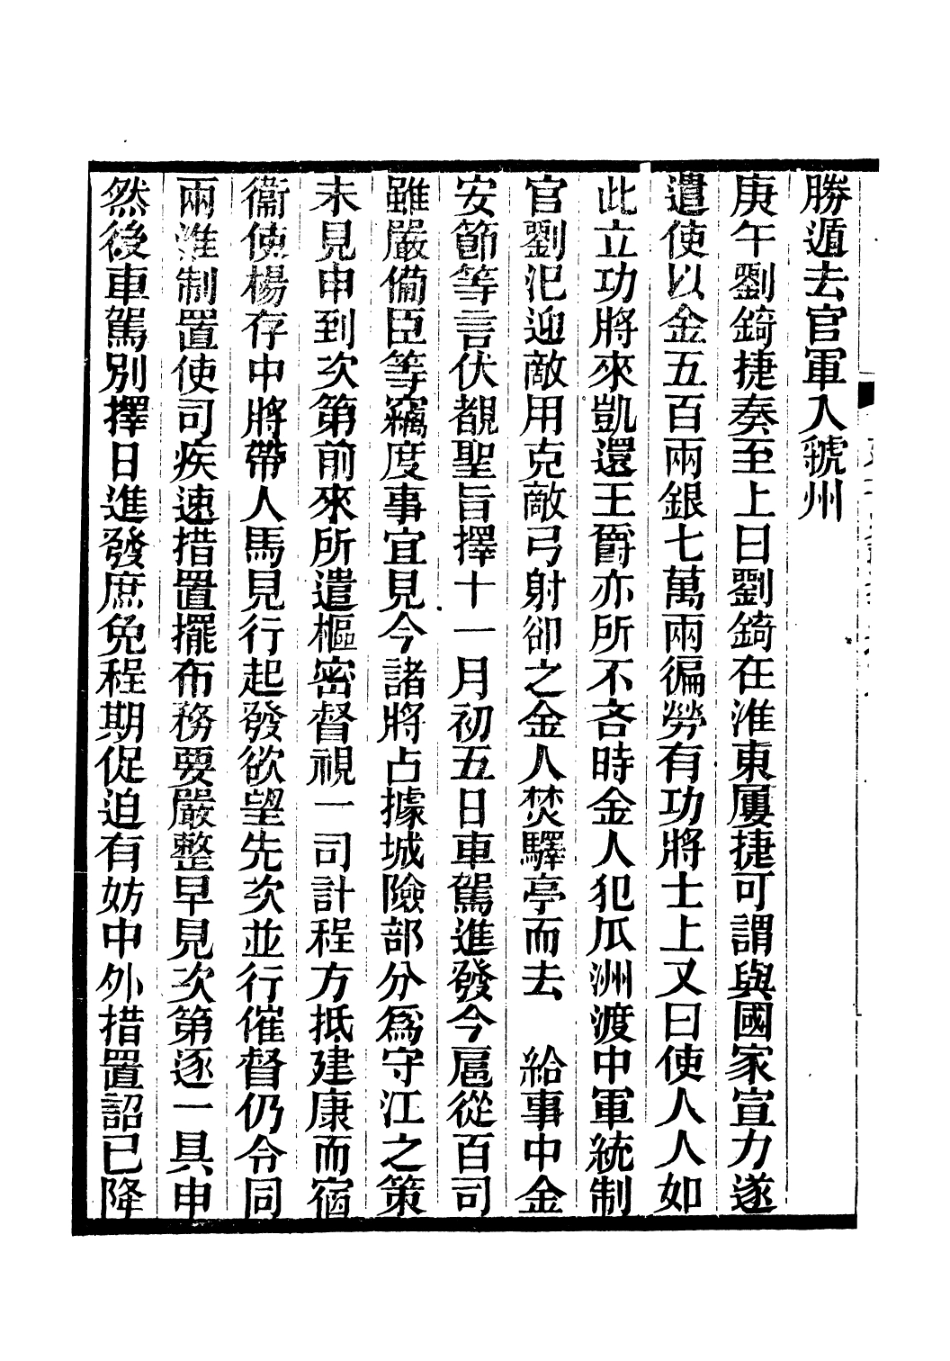 勝遁去官軍入虢州
庚午劉錡捷奏至上曰劉錡在淮東屢捷可謂與國家宣力遂
遣使以金五百兩銀七萬兩徧勞有功將士上又曰使人人如
此立功將來凱還王爵亦所不吝時金人犯瓜洲渡中軍統制
官劉汜迎敵用克敵弓射卻之金人焚驛亭而去　給事中金
安節等言伏覩聖旨擇十一月初五日車駕進發今扈從百司
雖嚴備臣等竊度事宜見今諸將占據城險部分為守江之策
未見申到次第前來所遣樞密督視一司計程方抵建康而宿
衞使楊存中將帶人馬見行起發欲望先次並行催督仍令同
兩淮制置使司疾速措置擺布務要嚴整早見次第逐一具申
然後車駕別擇日進發庶免程期促迫有妨中外措置詔已降